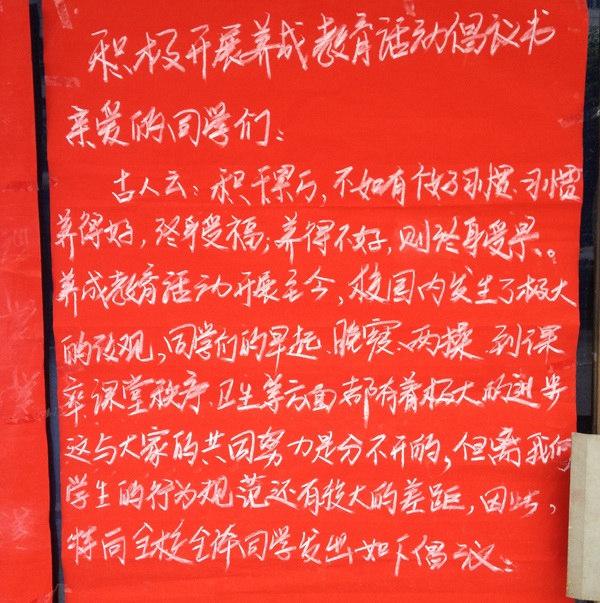 积极开展养成教育活动倡议书
亲爱的同学们：
古人云：积千累万，不如有个好习惯.习惯
养得好，终身受福；养得不好，则终身受累。
养成教育活动开展至今，校园内发生了极大
的改观，同学们的早起、晚寝、两操、到课
率、课堂秩序、卫生等方面都有着极大的进步
这与大家的共同努力是分不开的，但离我们
学生的行为规范还有较大的差距，因此，
特向全校全体同学发出如下倡议：